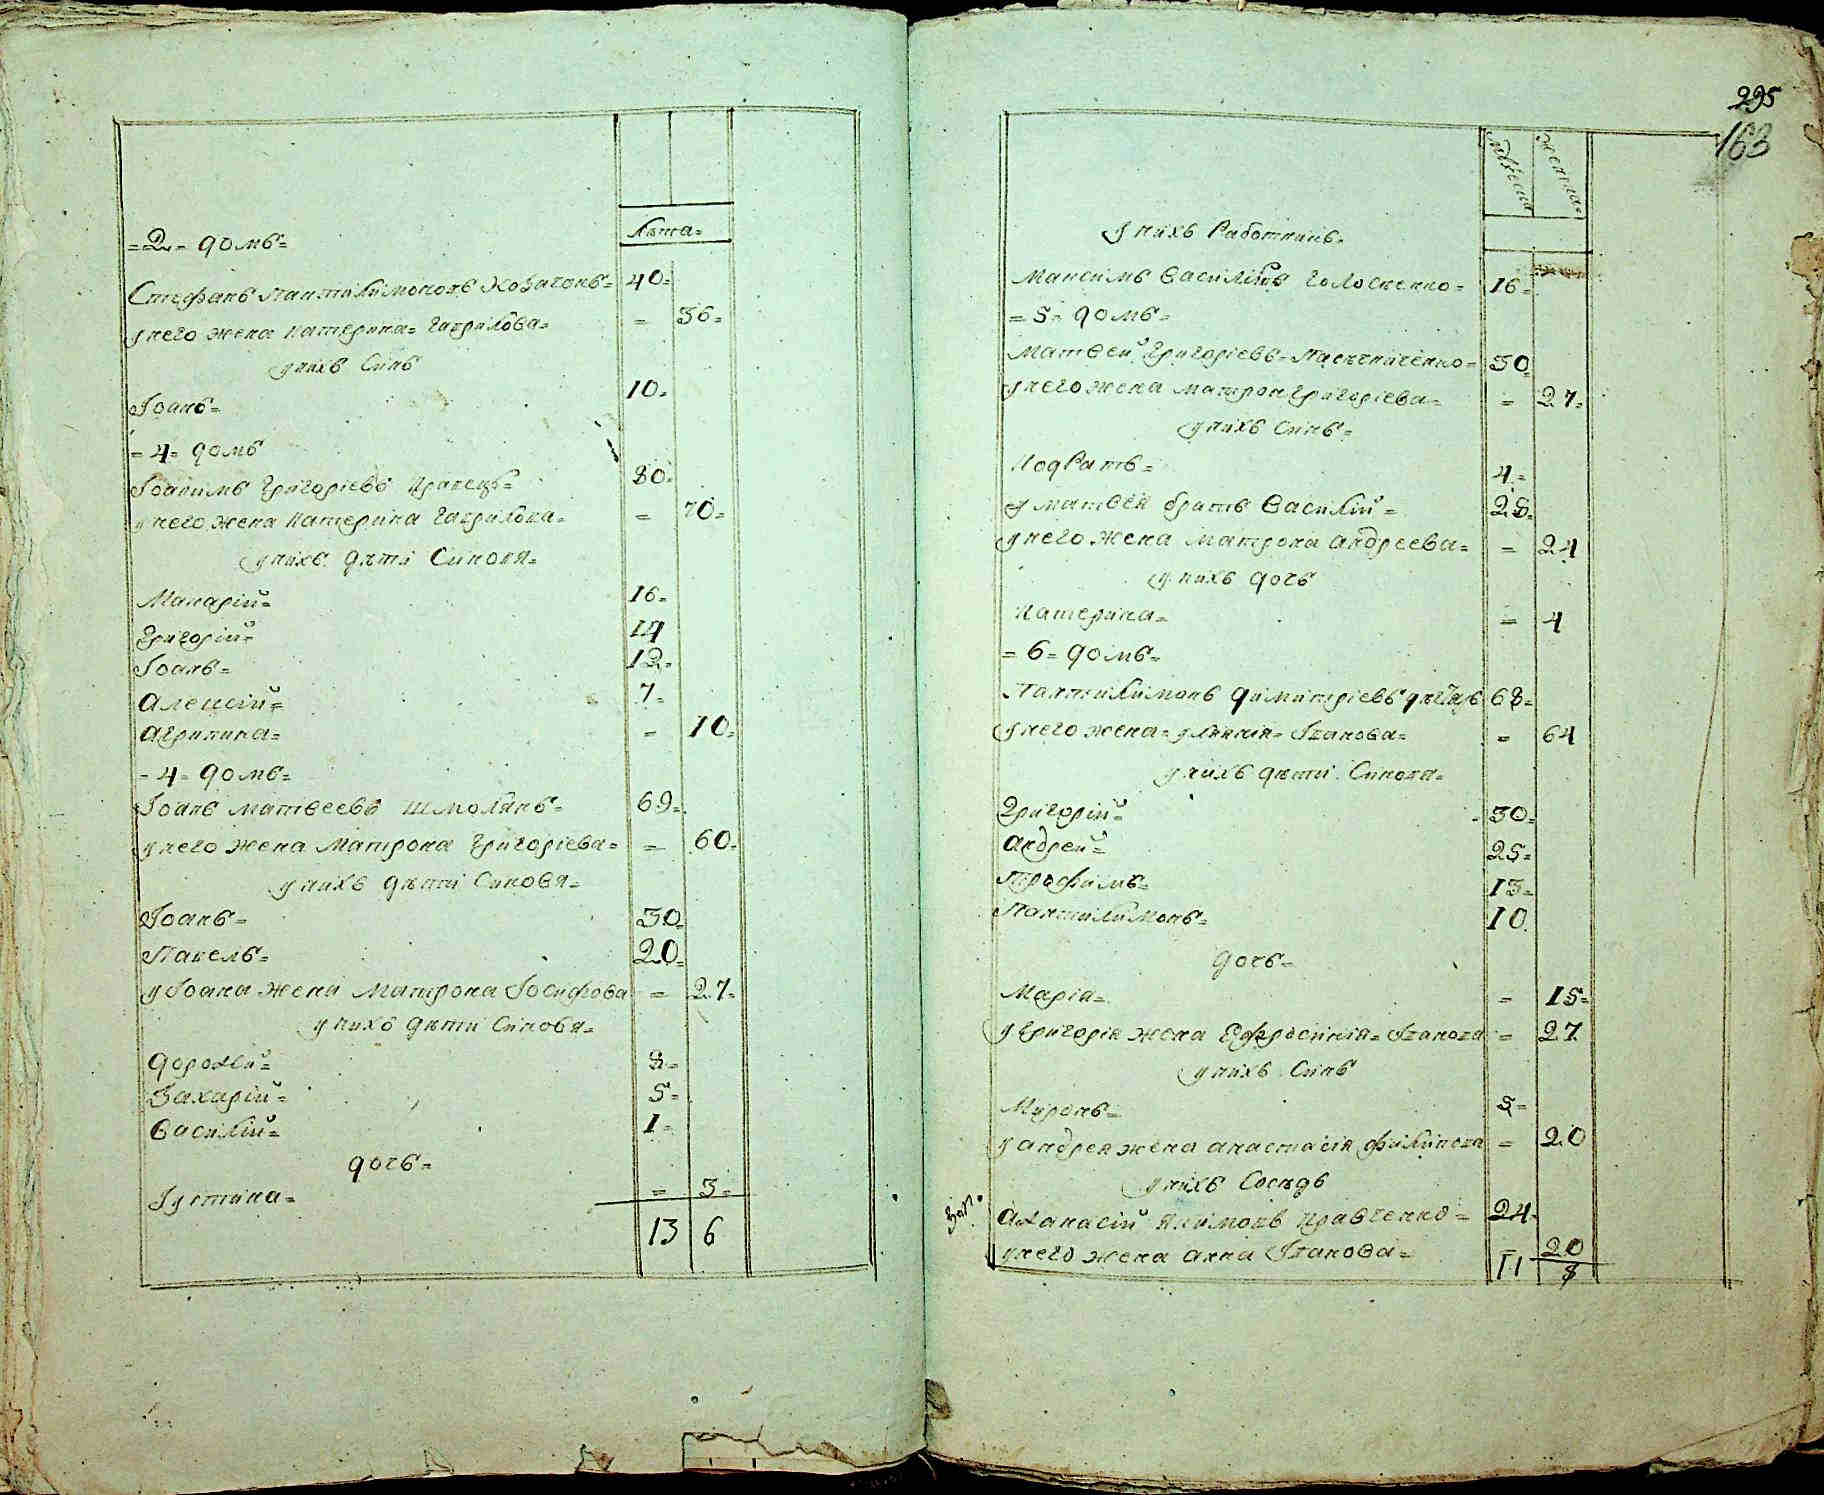 лѣта=
=2= домъ=
Стефанъ Пантилимоновъ Ховатовъ= 40=
у него жена Катерина= Гаврилова= = 36=
у нихъ Синъ
Іоанъ= 10=
=4= домъ
Іоакимъ Григоріевъ Кравецъ= 80=
у него жена Катерина Гаврилова= = 70=
у нихъ дѣти Синовя=
Макарій= 16=
Григорій= 14
Іоанъ= 12=
Алексій= 7=
Агрипина= = 10=
=4= домъ=
Іоанъ Матвеевъ Шмолинъ= 69=
у него жена Матрона Григоріева= = 60=
у нихъ дѣти Синовя=
Іоанъ= 30=
Павелъ= 20=
у Іоана жена Матрона Іосифова = 27=
у нихъ дѣти Синовя=
Дороѳей= 8=
Захарій= 5=
Василій= 1=
дочъ=
Іустина= = 3=
13 6
295
163
мужеска женска=
у нихъ Работникъ=
Максимъ Василіевъ Голосненко= 16=
=5= домъ=
Матвей Григоріевъ= Пасѣчниченко= 30
у него жена Матрон Григоріева= = 27=
у нихъ Синъ=
Кодратъ= 4=
у Матвея братъ Василій= 28=
у него жена Матрона Андреева= = 24
у нихъ дочъ
Катерина= = 4
=6= домъ=
Пантилимонъ Димитріевъ 68=
у него жена= Іванова= = 64
у нихъ дѣти Синовя=
Григорій= 30=
Андрей= 25=
Трофимъ= 13=
Пантилимонъ= 10
дочъ=
Марія= = 15=
у Григорія жена Ефросинія= Іванова = 27
у нихъ Синъ
Миронъ= 5=
у Андрея жена Анастасія Филипова = 20
у нихъ Сосѣдъ
Аѳанасій Кравченко= 24=
у него жена Анна Іванова= = 20
11 8